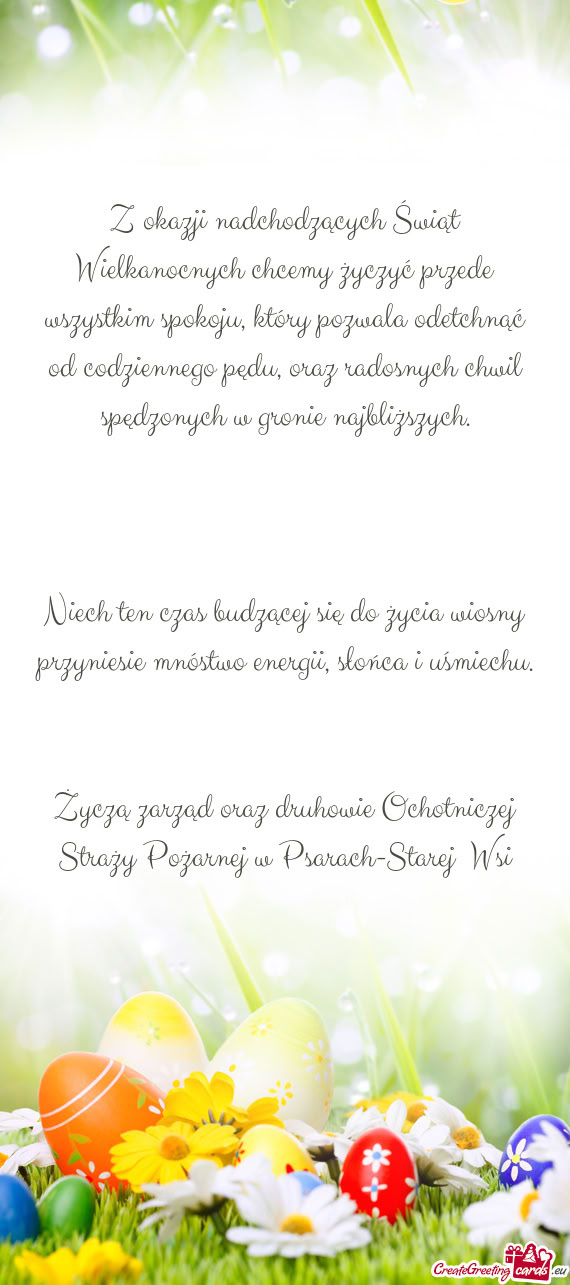 Z okazji nadchodzących Świąt
Wielkanocnych chcemy życzyć przede
wszystkim spokoju, który pozwala odetchnąć
od codziennego pędu, oraz radosnych chwil
spędzonych w gronie najbliższych.
Niech ten czas budzącej się do życia wiosny
przyniesie mnóstwo energii, słońca i uśmiechu.
Życzą zarząd oraz druhowie Ochotniczej
Straży Pożarnej w Psarach-Starej Wsi
CreateGreeting cards.eu